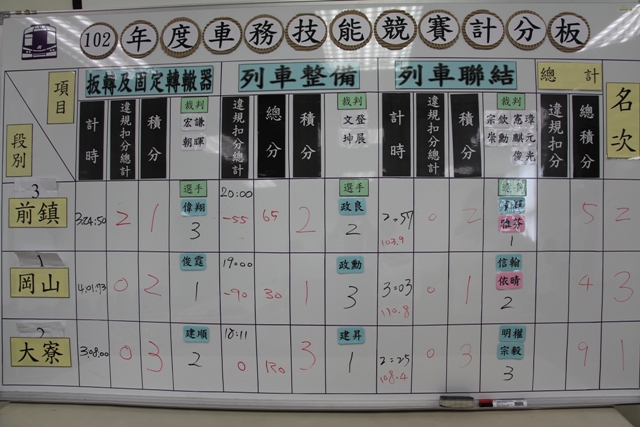 102年度車務技能競賽計分板
項目 扳轉及固定轉轍器 列車整備 列車聯結 總計 名次
段別 計時 違規扣分總計 積分 裁判 宏謙 朝暉 違規扣分總計 總分 積分 裁判 文登 坤展 計時 違規扣分總計 積分 裁判 宗欽憲璋 崇勳麒元 俊光 違規扣分 總分
3 前鎮 3:24:50 2 1 選手 偉翔 3 20:00 -55 65 2 選手 政良 2 2:57 103.9 0 2 雅芬 1 5 2 2
1 岡山 4:01:73 0 2 俊霆 1 19:00 -90 30 1 政勳 3 3:03 110.8 0 1 信翰 依晴 2 4 3 3
2 大寮 3:08:00 0 3 建順 2 18:11 0 120 3 建昇 1 2:25 108.4 0 3 明權 宗毅 3 9 1 1